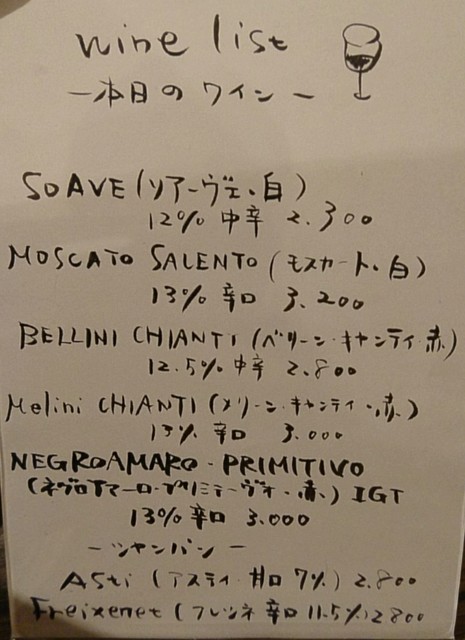 wine list
ー本日のワインー
SOAVE (ソアーヴェ・白)
12% 中辛 2.300
MOSCATO SALENTO (モスカート・白)
13% 辛口 3.200
BELLINI CHIANTI (ベリーニ・キャンティ・赤)
12.5% 中辛 2.800
Melini CHIANTI (メリーニ・キャンティ・赤)
13% 辛口 3.000
NEGROAMARO・PRIMITIVO
(ネグロアマーロ・プリミティーヴォ・赤) IGT
13% 辛口 3.000
ーシャンパンー
ASti (アスティ 甘口 7%) 2.800
Freixenet (フレシネ 辛口 11.5%) 2800